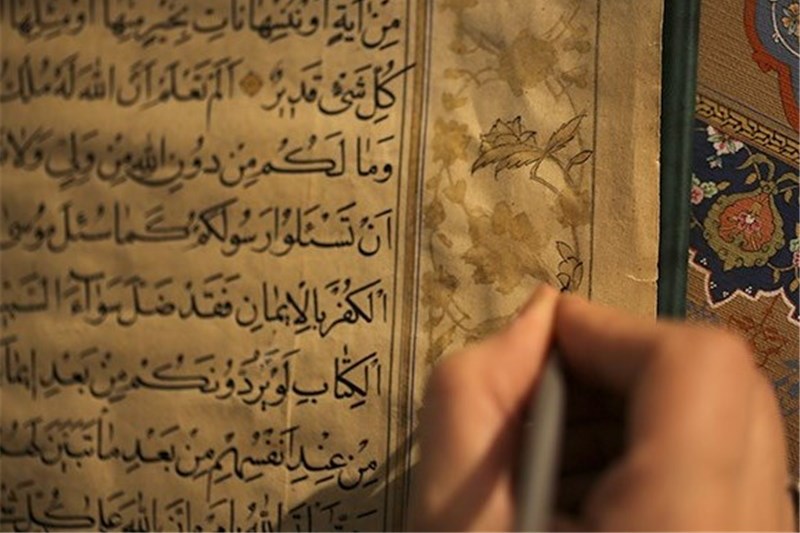 مِنْ اٰيَةٍ اَوْ نُنْسِهَا نَأْتِ بِخَيْرٍ مِنْهَا اَوْ مِثْلِهَا
كُلِّ شَىْءٍ قَدِيرٌ اَلَمْ تَعْلَمْ اَنَّ اللهَ لَهُ مُلْكُ
وَمَا لَكُمْ مِنْ دُونِ اللهِ مِنْ وَلِيٍّ وَلَا
اَنْ تَسْـَٔلُوا رَسُولَكُمْ كَمَا سُئِلَ مُوسٰى
الْكُفْرَ بِالْاِيمَانِ فَقَدْ ضَلَّ سَوَآءَ
الْكِتَابِ لَوْ يَرُدُّونَكُمْ مِنْ بَعْدِ
مِنْ عِنْدِ اَنْفُسِهِمْ مِنْ بَعْدِ مَا تَبَيَّنَ
اللهَ عَلٰى كُلِّ